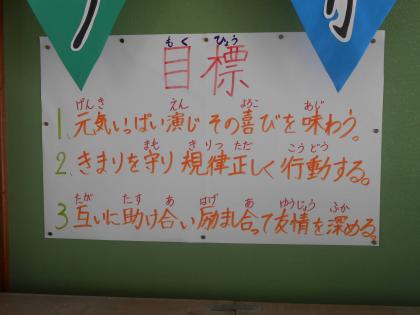 もく ひょう
目標
げんき えん よろこ あじ
1、元気いっぱい演じ その喜びを 味わう。
まも きりつ ただ こうどう
2、きまりを守り 規律正しく 行動する。
たが たす あ はげ あ ゆうじょう ふか
3 互いに助け合い 励まし合って友情を深める。